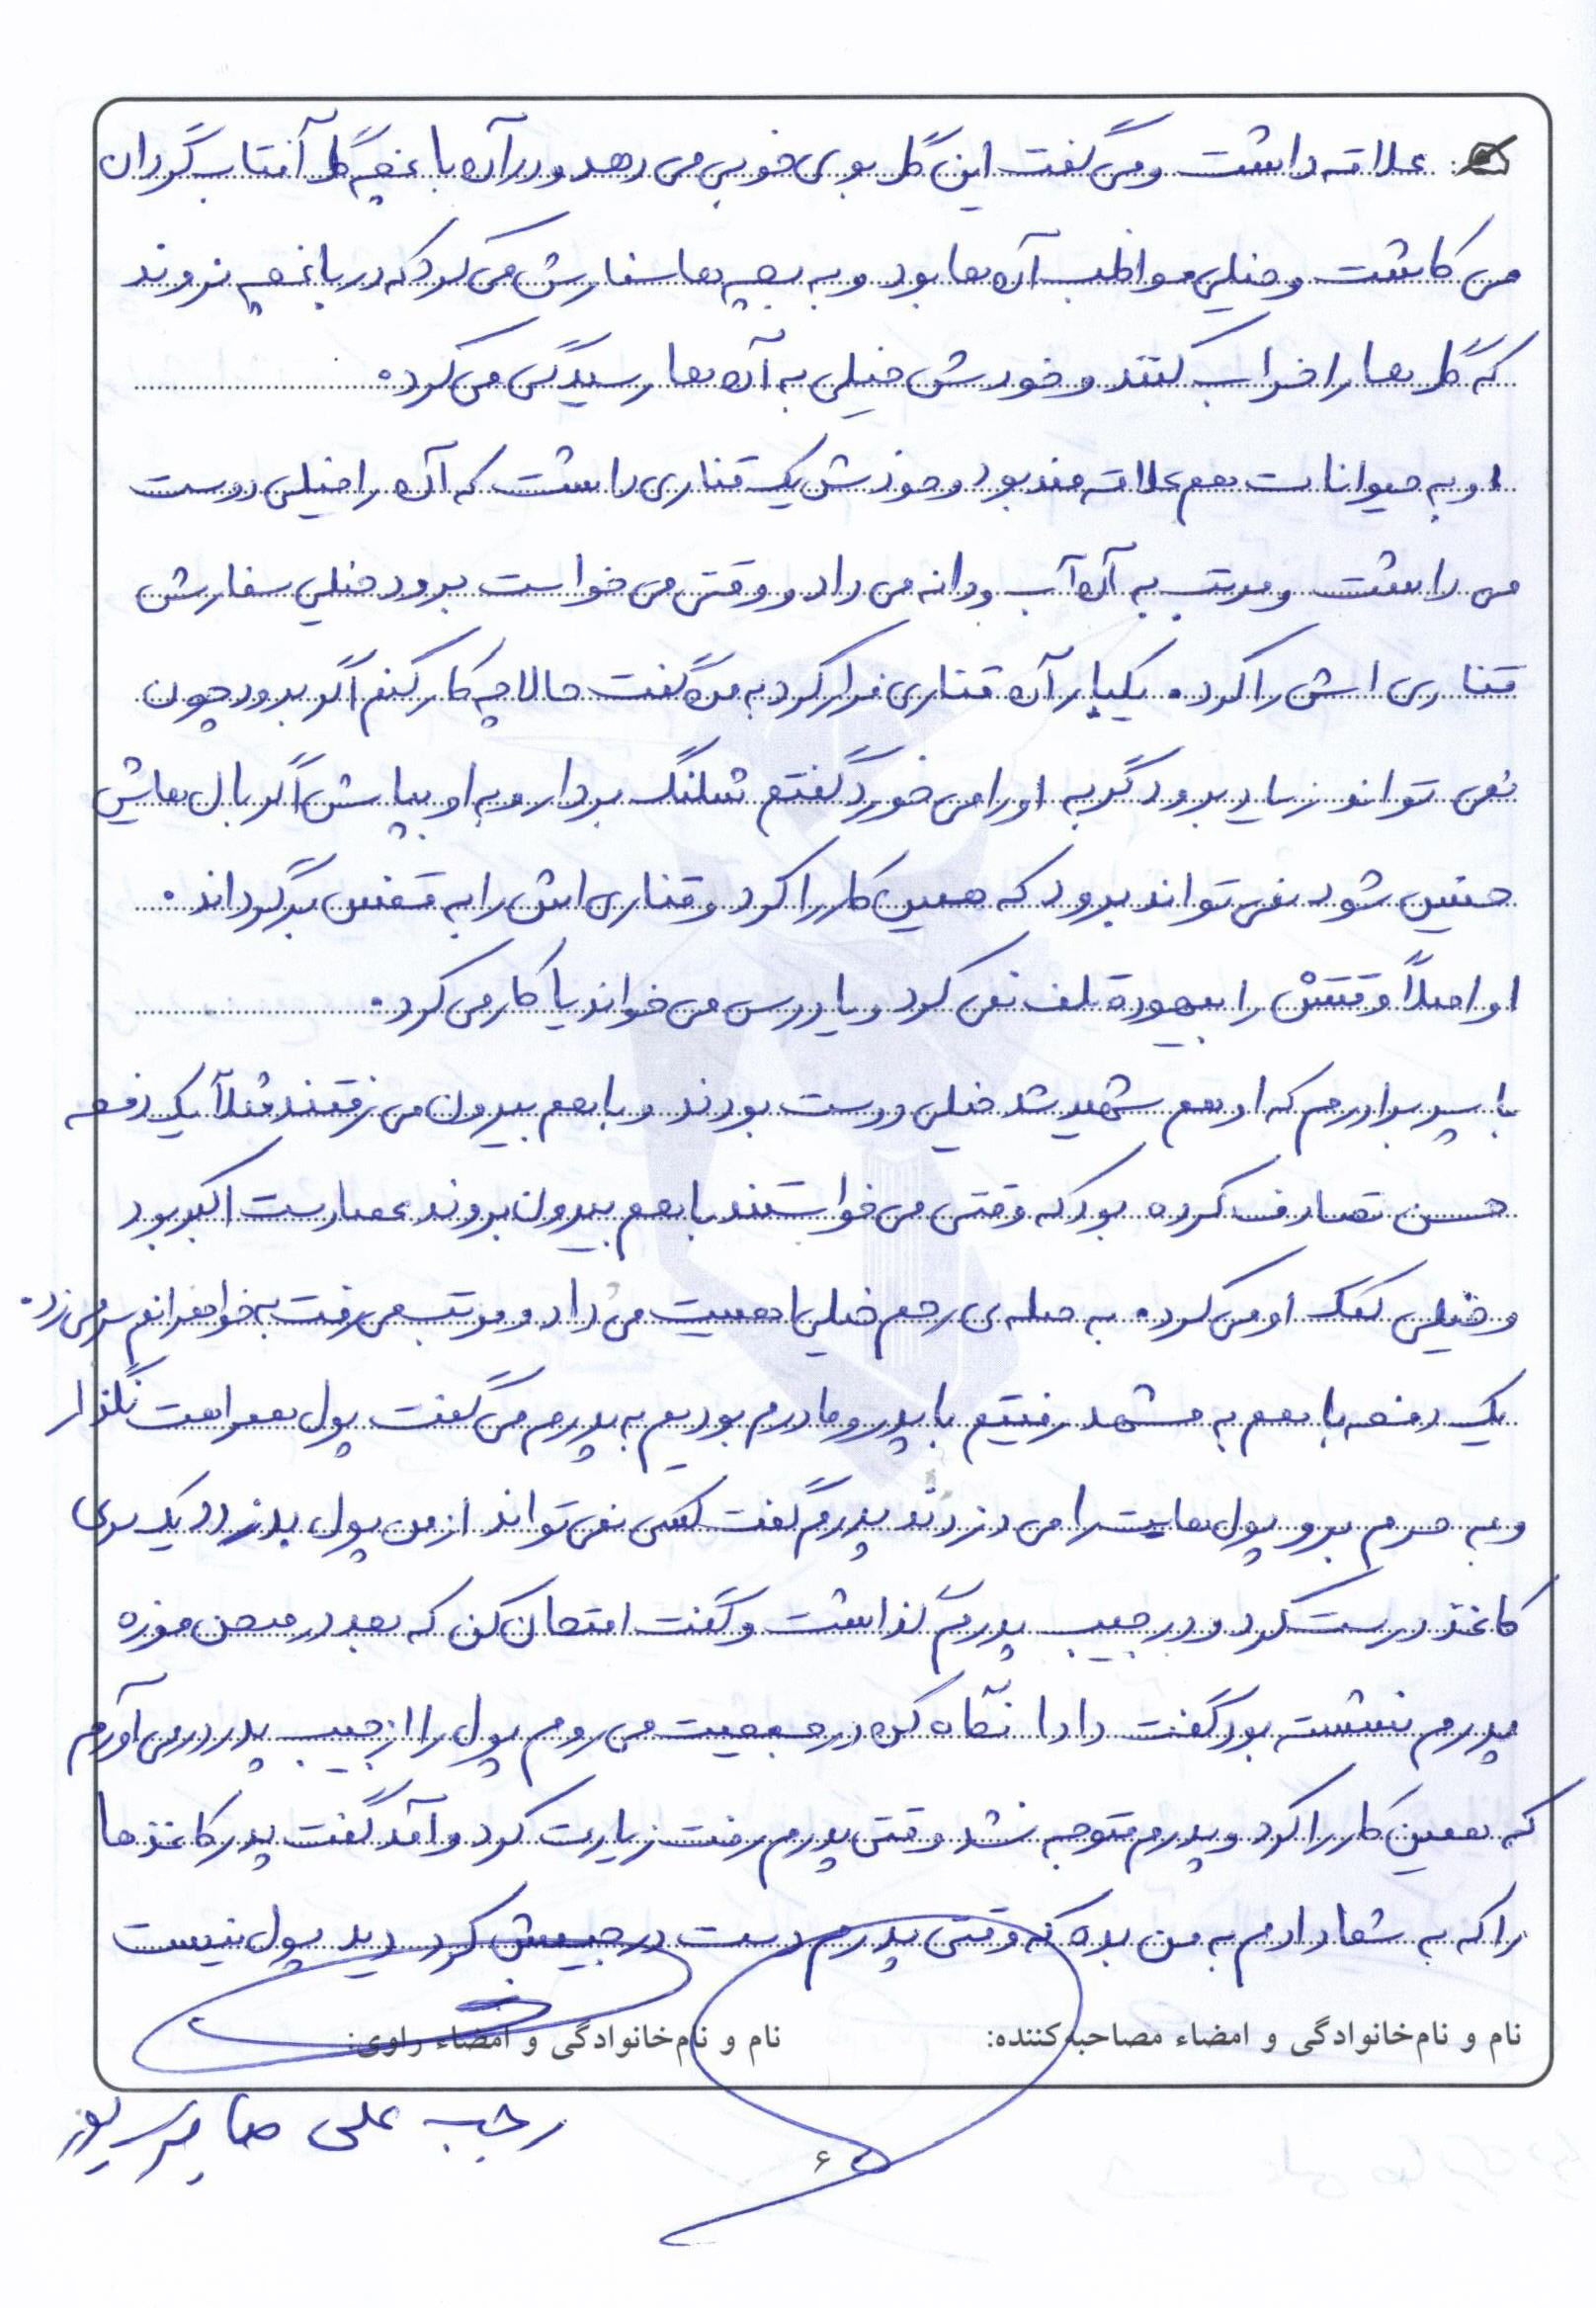 علاقه داشت و می گفت این گل بوی خوبی می دهد و در آن باغچه گل آفتاب گردان
می کاشت و خیلی مواظب آن ها بود و به بچه ها سفارش می کرد که در باغچه نروند
که گل ها را خراب کنند و خودش خیلی به آن ها رسیدگی می کرد.
او به حیوانات هم علاقه مند بود و خودش یک قناری داشت که آن را خیلی دوست
می داشت و مرتب به آن آب و دانه می داد و وقتی می خواست برود خیلی سفارش
قناری اش را کرد. یکبار آن قناری فرار کرد به من گفت حالا چه کار کنم اگر برود چون
نمی تواند زیاد برود گربه او را می خورد گفتم شلنگ بردار و به او بپاش اگر بال هایش
خیس شود نمی تواند برود که همین کار را کرد و قناری اش را به قفس برگرداند.
او اصلاً وقتش را بیهوده تلف نمی کرد و یا درس می خواند یا کار می کرد.
با پسر برادرم که او هم شهید شد خیلی دوست بودند و با هم بیرون می رفتند مثلاً یک دفعه
حسن تصادف کرده بود که وقتی می خواستند با هم بیرون بروند عصا دست اکبر بود
و خیلی کمک او می کرد. به صله ی رحم خیلی اهمیت می داد و مرتب می رفت به خواهرانم سر می زد.
یک دفعه با هم به مشهد رفتیم با پدر و مادرم بودیم به پدرم می گفت پول همراهت نگذار
و به حرم برو پول هایت را می دزدند پدرم گفت کسی نمی تواند از من پول بدزدد یک سری
کاغذ درست کرد و در جیب پدرم گذاشت و گفت امتحان کن که بعد در صحن موزه
پدرم نشسته بود گفت دادا نگاه کن در جمعیت می روم پول را از جیب پدر در می آورم
که همین کار را کرد و پدرم متوجه نشد وقتی پدرم رفت زیارت کرد و آمد گفت پدر کاغذها
را که به شما دادم به من بده که وقتی پدرم دست در جیبش کرد دید پول نیست
نام و نام‌خانوادگی و امضاء مصاحبه‌کننده: نام و نام‌خانوادگی و امضاء راوی:
رجب علی صابر پور
۶